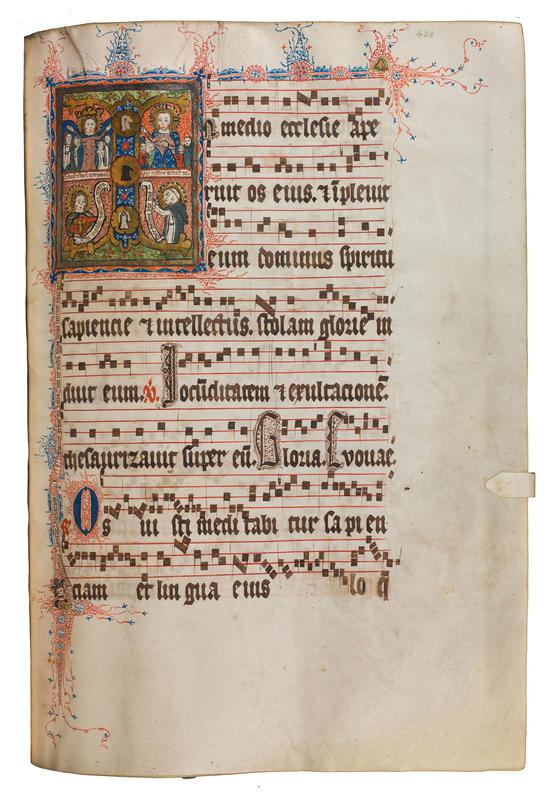 424
n medio ecclesie ape
ruit os eius. ⁊ īpleuit
eum dominus spiritu
sapiencie ⁊ intellectus. stolam glorie in
duit eum. v. Jocūditatem ⁊ exultacionē.
thesaurizauit super eū. Gloria. Evovae.
Os iusti meditabitur sapien
ciam et lingua eius lo q